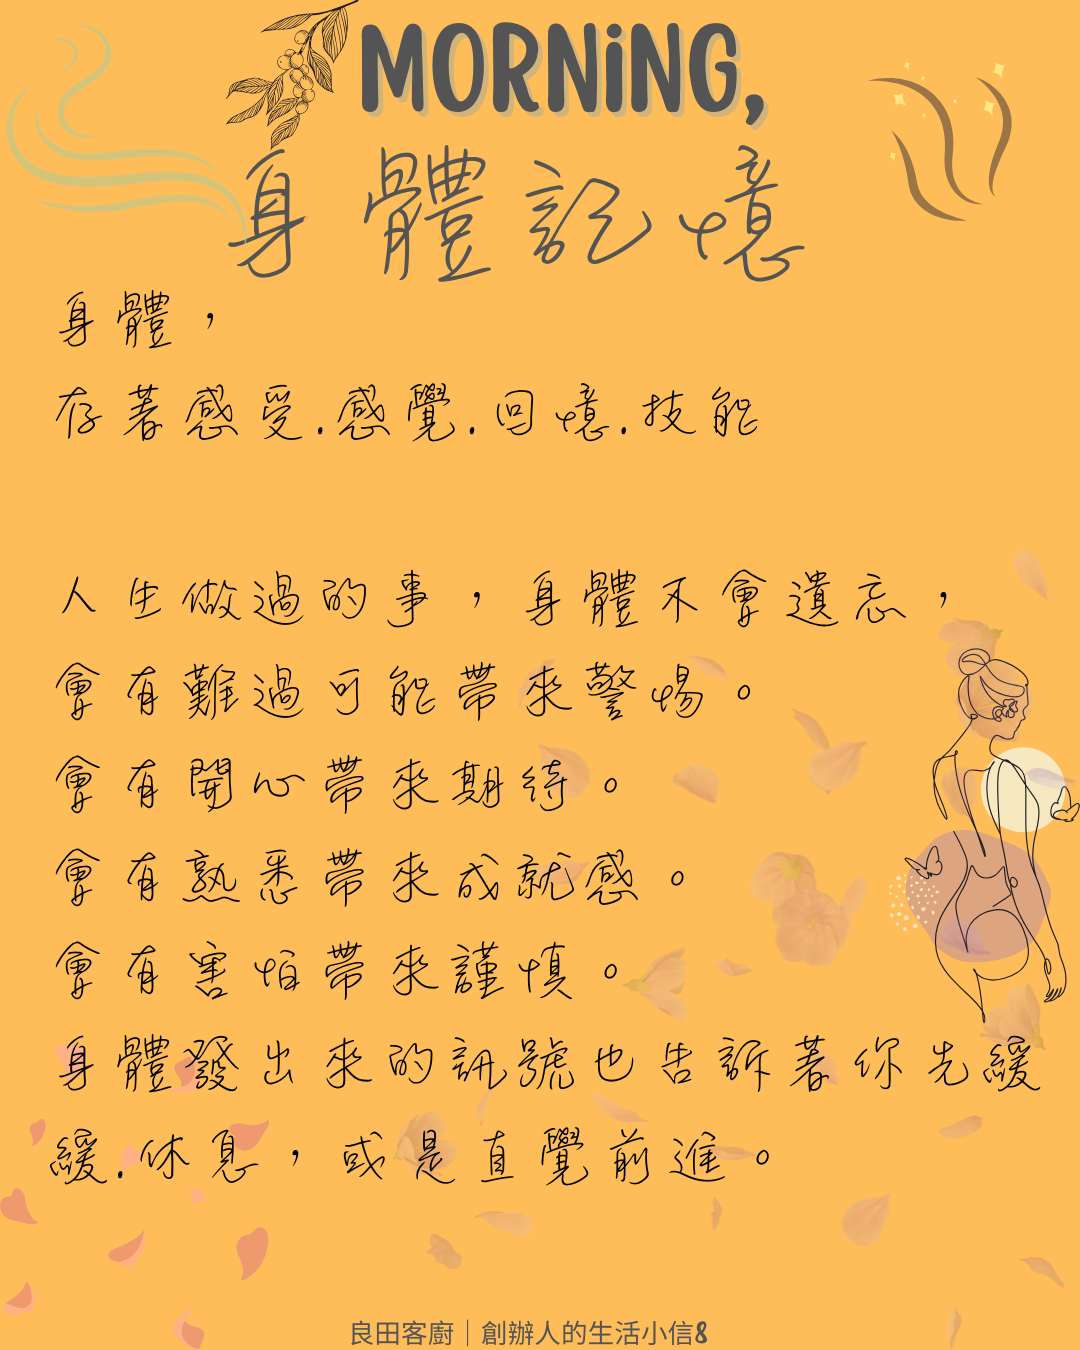 MORNiNG,
身體記憶
身體，
存著感受.感覺.回憶.技能
人生做過的事，身體不會遺忘，
會有難過可能帶來警惕。
會有開心帶來期待。
會有熟悉帶來成就感。
會有害怕帶來謹慎。
身體發出來的訊號也告訴著你先緩
緩.休息，或是直覺前進。
良田客廚｜創辦人的生活小信8